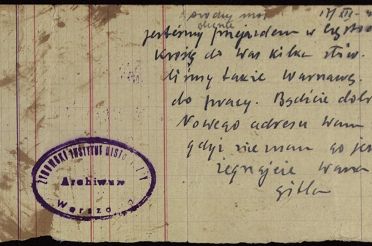 środny mor
17 III
jesteśmy przejazdem w Często
kreślę do Was kilka słów.
liśmy także Warszawę.
do pracy. Bądźcie dobr
Nowego adresu Wam
gdyż nie mam go jes
żegnajcie Wasza
gitla
ŻYDOWSKI INSTYTUT HISTO NY
Archiwum
Warszawa